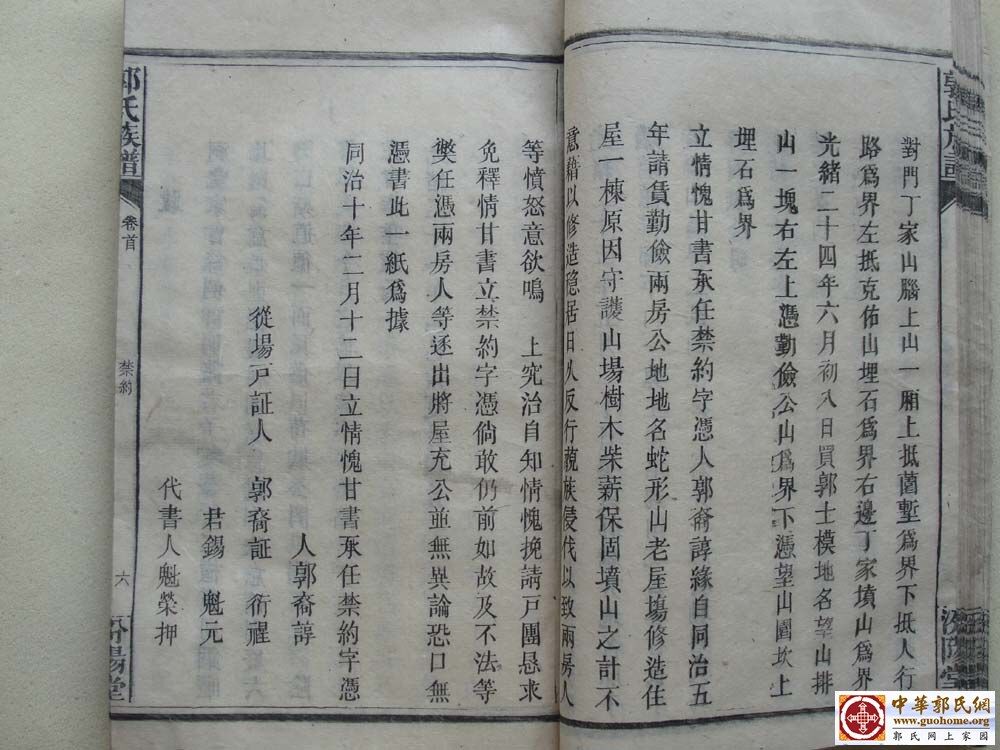 對門丁家山腦上山一廂上抵薗塹爲界下抵人行
路爲界左抵克佑山埋石爲界右邊丁家墳山爲界
光緒二十四年六月初入日買郭士模地名望山排
山一塊右左上憑勤儉公山爲界下憑望山園坎上
埋石爲界
立情愧甘書承任禁約字憑人郭裔諄緣自同治五
年請賃勤儉兩房公地地名蛇形山老屋塲修造住
屋一棟原因守護山場樹木柴薪保固墳山之計不
意藉以修造穏居日久反行藐族侵伐以致兩房人
等憤怒意欲鳴 上究治自知情愧挽請戸團恳求
免釋情甘書立禁約字憑倘敢仍前如故及不法等
獘任憑兩房人等逐出將屋充公並無異論恐口無
憑書此一紙爲據
同治十年二月十二日立情愧甘書承任禁約字憑
人郭裔諄
從場戸証人 郭裔証 衍禋
君錫 魁元
代書人魁榮押
郭氏族譜
卷首
禁約
六
汾陽堂
中華郭氏網
www.guohome.org
郭氏网上家园